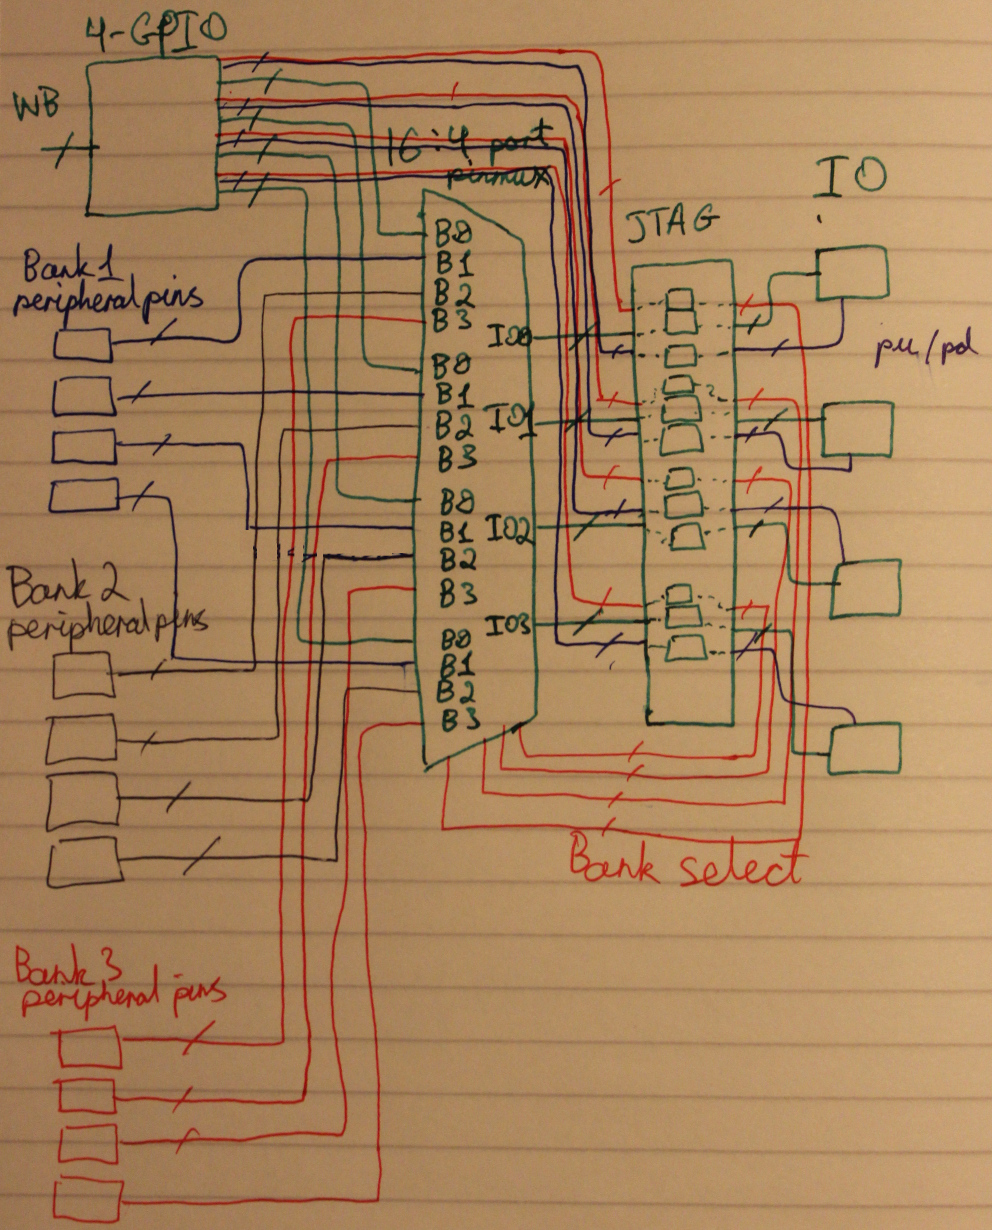 4-GPIO
WB
16:4 port
pinmux
IO
JTAG
Bank 1
peripheral pins
B0
B1
B2
B3
IO0
pu/pd
B0
B1
B2
B3
IO1
?
B0
B1
B2
B3
IO2
Bank 2
peripheral pins
B0
B1
B2
B3
IO3
Bank select
Bank 3
peripheral pins